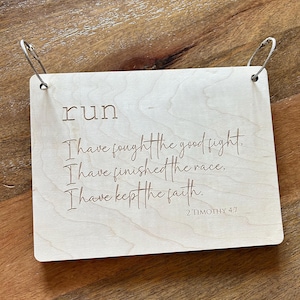 run
I have fought the good fight.
I have finished the race.
I have kept the faith.
2 TIMOTHY 4:7